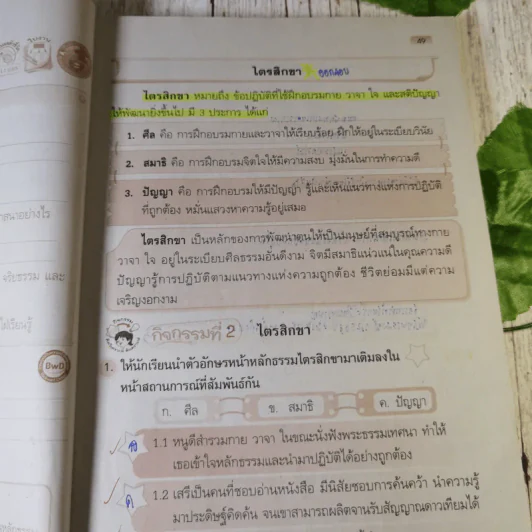 ไตรสิกขา ออกสอบ
ไตรสิกขา หมายถึง ข้อปฏิบัติที่ใช้ฝึกอบรมกาย วาจา ใจ และสติปัญญา
ให้พัฒนายิ่งขึ้นไป มี 3 ประการ ได้แก่
1. ศีล คือ การฝึกอบรมกายและวาจาให้เรียบร้อย ฝึกให้อยู่ในระเบียบวินัย
2. สมาธิ คือ การฝึกอบรมจิตใจให้มีความสงบ มุ่งมั่นในการทำความดี
3. ปัญญา คือ การฝึกอบรมให้มีปัญญา รู้และเห็นแนวทางแห่งการปฏิบัติ
ที่ถูกต้อง หมั่นแสวงหาความรู้อยู่เสมอ
ไตรสิกขา เป็นหลักของการพัฒนาตนให้เป็นมนุษย์ที่สมบูรณ์ทางกาย
วาจา ใจ อยู่ในระเบียบศีลธรรมอันดีงาม จิตมีสมาธิแน่วแน่ในคุณความดี
ปัญญารู้การปฏิบัติตามแนวทางแห่งความถูกต้อง ชีวิตย่อมมีแต่ความ
เจริญงอกงาม
กิจกรรมที่ 2 ไตรสิกขา
1. ให้นักเรียนนำตัวอักษรหน้าหลักธรรมไตรสิกขามาเติมลงใน
หน้าสถานการณ์ที่สัมพันธ์กัน
ก. ศีล ข. สมาธิ ค. ปัญญา
1.1 หนูดีสำรวมกาย วาจา ในขณะนั่งฟังพระธรรมเทศนา ทำให้
เธอเข้าใจหลักธรรมและนำมาปฏิบัติได้อย่างถูกต้อง
ค 1.2 เสรีเป็นคนที่ชอบอ่านหนังสือ มีนิสัยชอบการค้นคว้า นำความรู้
มาประดิษฐ์คิดค้น จนเขาสามารถผลิตจานรับสัญญาณดาวเทียมได้
สนาอย่างไร
จริยธรรม และ
ได้เรียนรู้